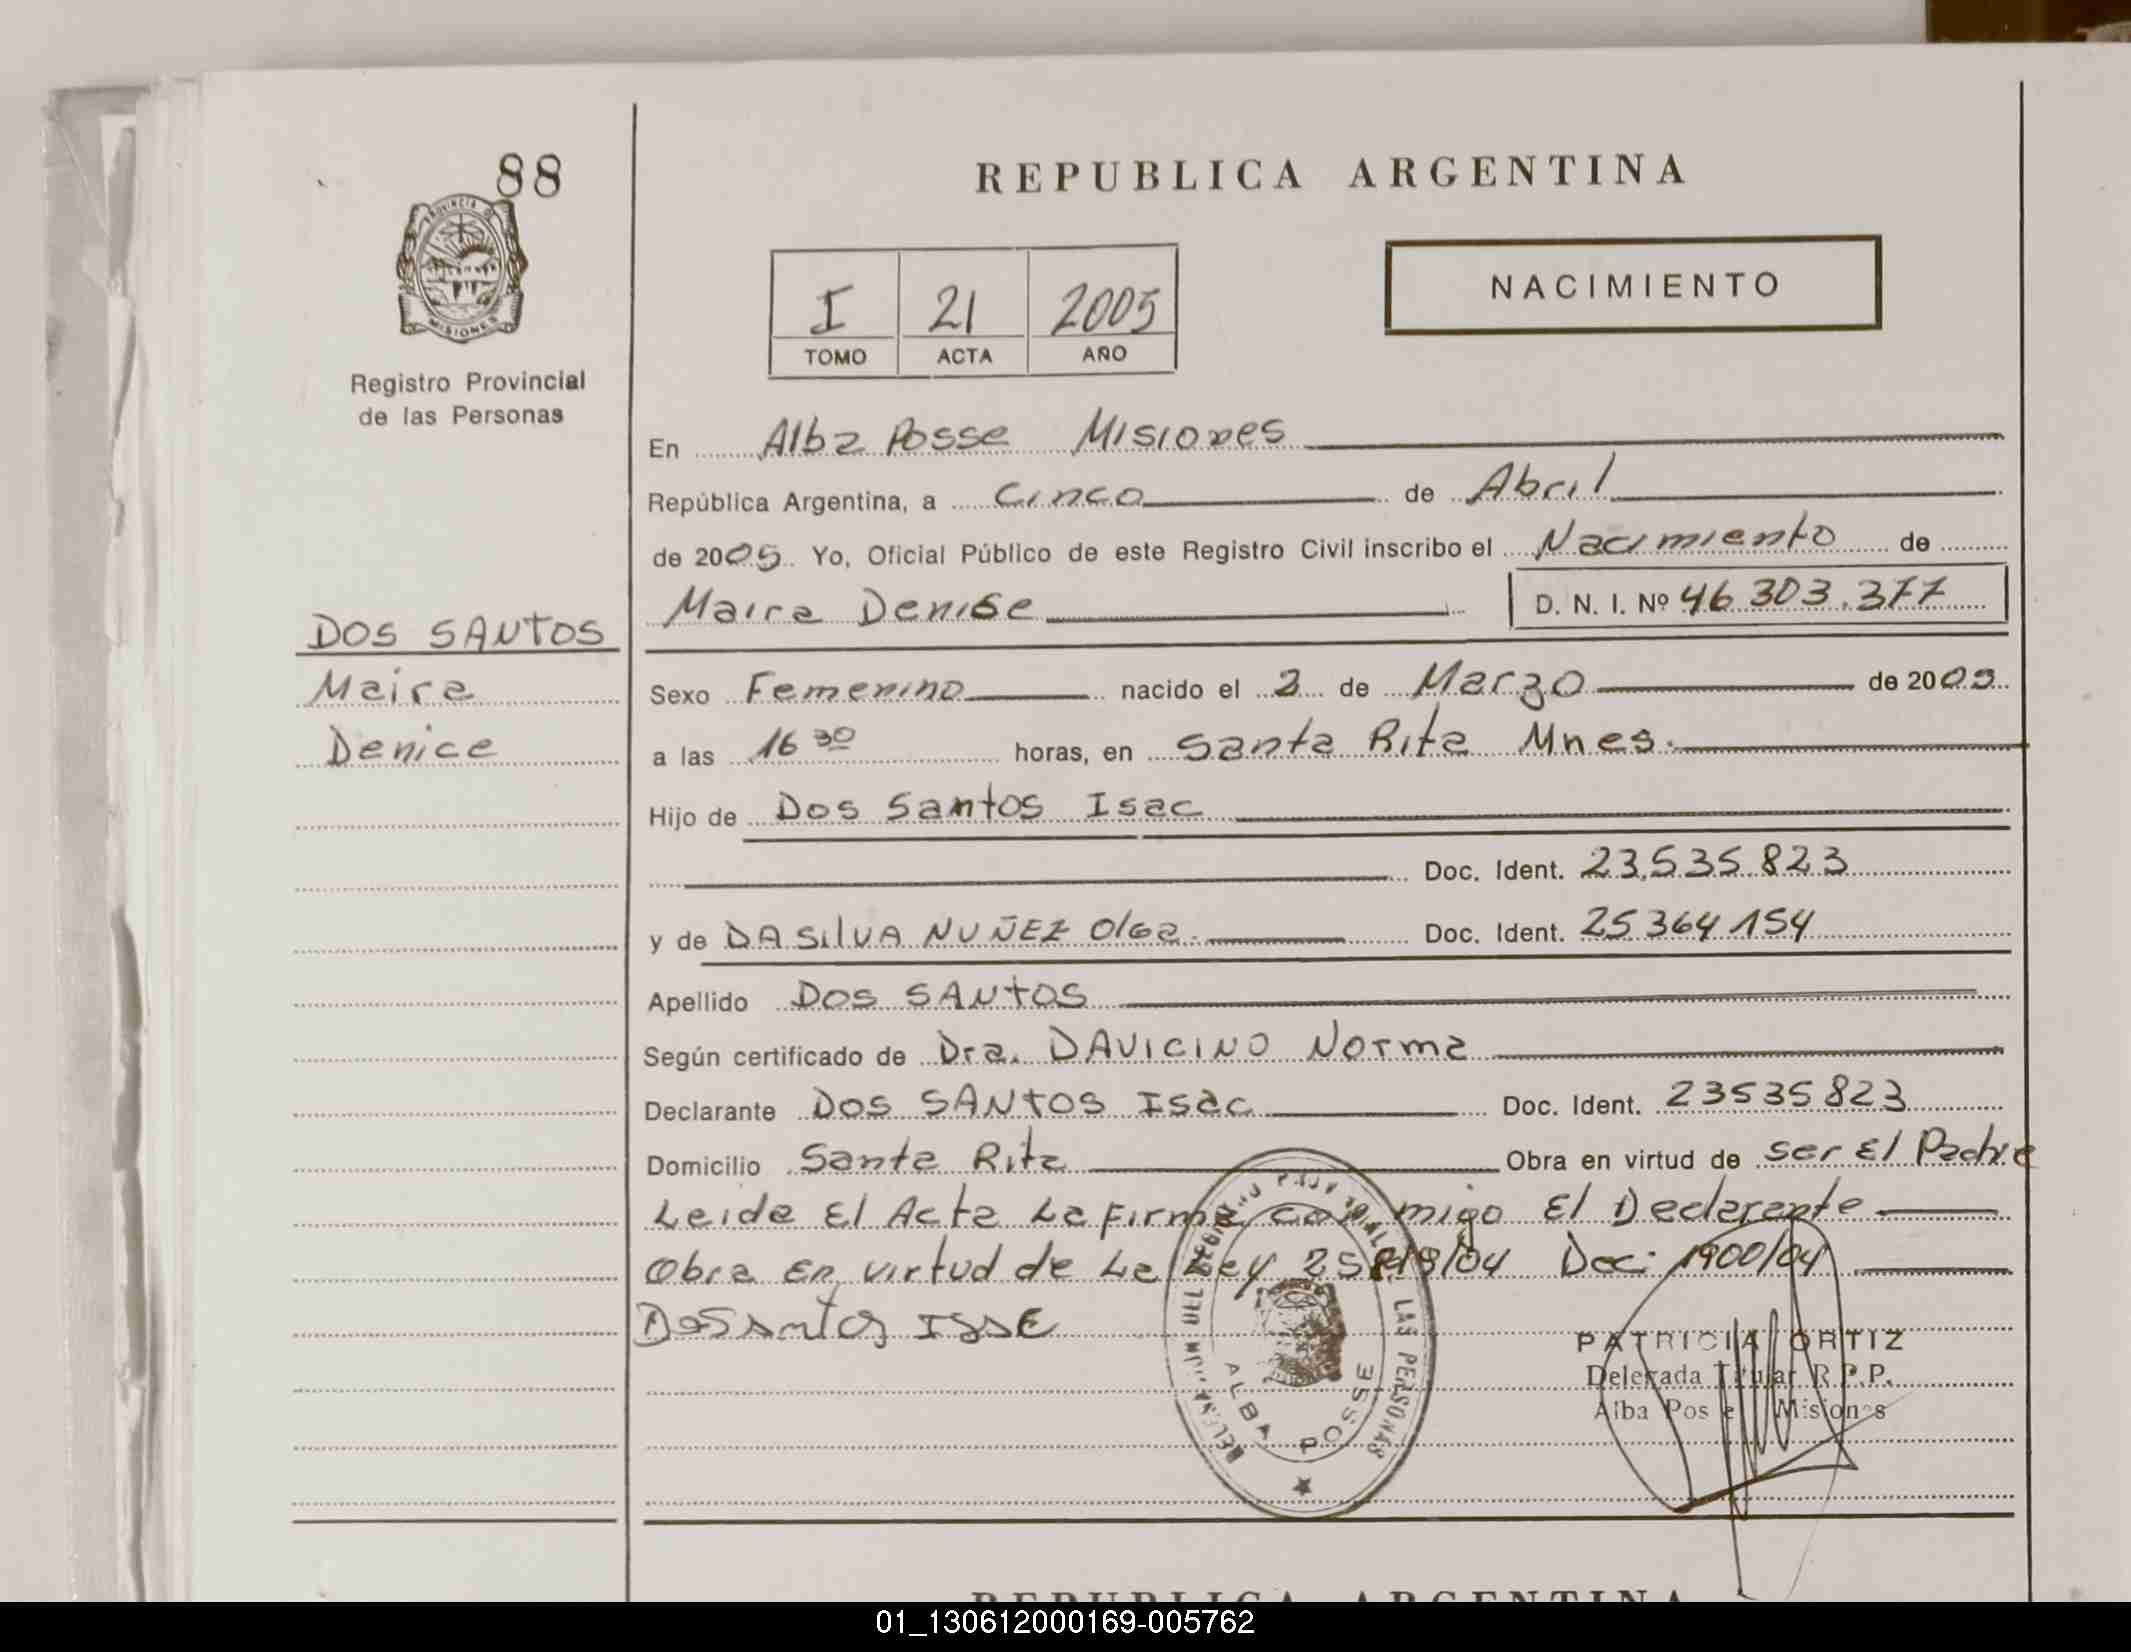 88
PROVINCIA DE
MISIONES
Registro Provincial
de las Personas
DOS SANTOS
Maira
Denice
REPUBLICA ARGENTINA
I 21 2005
TOMO ACTA AÑO
NACIMIENTO
En Alba Posse Misiones
República Argentina, a Cinco de Abril
de 2005. Yo, Oficial Público de este Registro Civil inscribo el Nacimiento de
Maira Denise D. N. I. Nº 46 303.377
Sexo Femenino nacido el 2 de Marzo de 2005
a las 16 30 horas, en Santa Rita Mnes.
Hijo de Dos Santos Isac
Doc. Ident. 23.535.823
y de DA SilVA NUÑEZ Olga. Doc. Ident. 25 364 154
Apellido DOS SANTOS
Según certificado de Dra. DAVICINO Norma
Declarante DOS SANTOS Isac Doc. Ident. 23535823
Domicilio Santa Rita Obra en virtud de ser El Padre
Leida El Acta La Firma con migo El Declarante
Obra En virtud de La Ley 25 /04 Dec: 1900/04
DoSantos
LAS PERSONAS
ALBA POSSE
PATRICIA ORTIZ
Delegada Titular R.P.P.
Alba Posse Misiones
REPUBLICA ARGENTINA
01_130612000169-005762